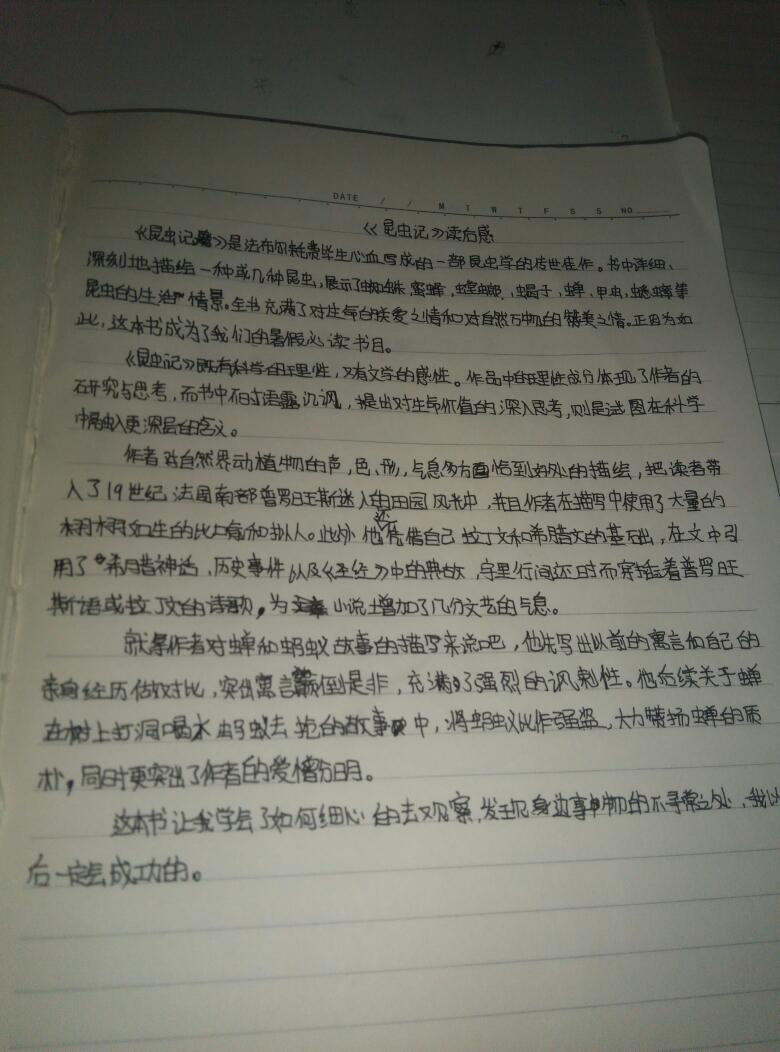 DATE / / M T W T F S S NO
《昆虫记》读后感
《昆虫记》是法布尔耗费毕生心血写成的一部昆虫学的传世佳作。书中详细、
深刻地描绘一种或几种昆虫，展示了蜘蛛、蜜蜂、螳螂、蝎子、蝉、甲虫、蟋蟀等
昆虫的生活情景。全书充满了对生命的关爱之情和对自然万物的赞美之情。正因为如
此，这本书成为了我们的暑假必读书目。
《昆虫记》既有科学的理性，又有文学的感性。作品中的理性成分体现了作者的
研究与思考，而书中不时语露沉调，提出对生命价值的深入思考，则是试图在科学
中融入更深层的含义。
作者对自然界动植物的声、色、形、气息多方面恰到好处的描绘，把读者带
入了19世纪法国南部普罗旺斯迷人的田园风光中，并且作者在描写中使用了大量的
栩栩如生的比喻和拟人。此外他还凭借自己拉丁文和希腊文的基础，在文中引
用了希腊神话、历史事件以及《圣经》中的典故，字里行间还时而穿插着普罗旺
斯语或拉丁文的诗歌，为小说增加了几分文艺的气息。
就拿作者对蝉和蚂蚁故事的描写来说吧，他先写出以前的寓言和自己的
亲身经历做对比，突出寓言颠倒是非，充满了强烈的讽刺性。他后续关于蝉
在树上打洞喝水蚂蚁去抢的故事中，将蚂蚁比作强盗，大力赞扬蝉的质
朴，同时更突出了作者的爱憎分明。
这本书让我学会了如何细心的去观察，发现身边事物的不寻常之处，我以
后一定会成功的。